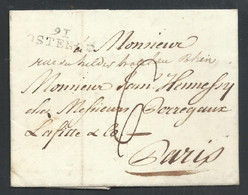 91
OSTENDE
Monsieur
rue du helder
Monsieur Jean Hennessy
chez Messieurs Perregaux
Lafitte & Co
Paris